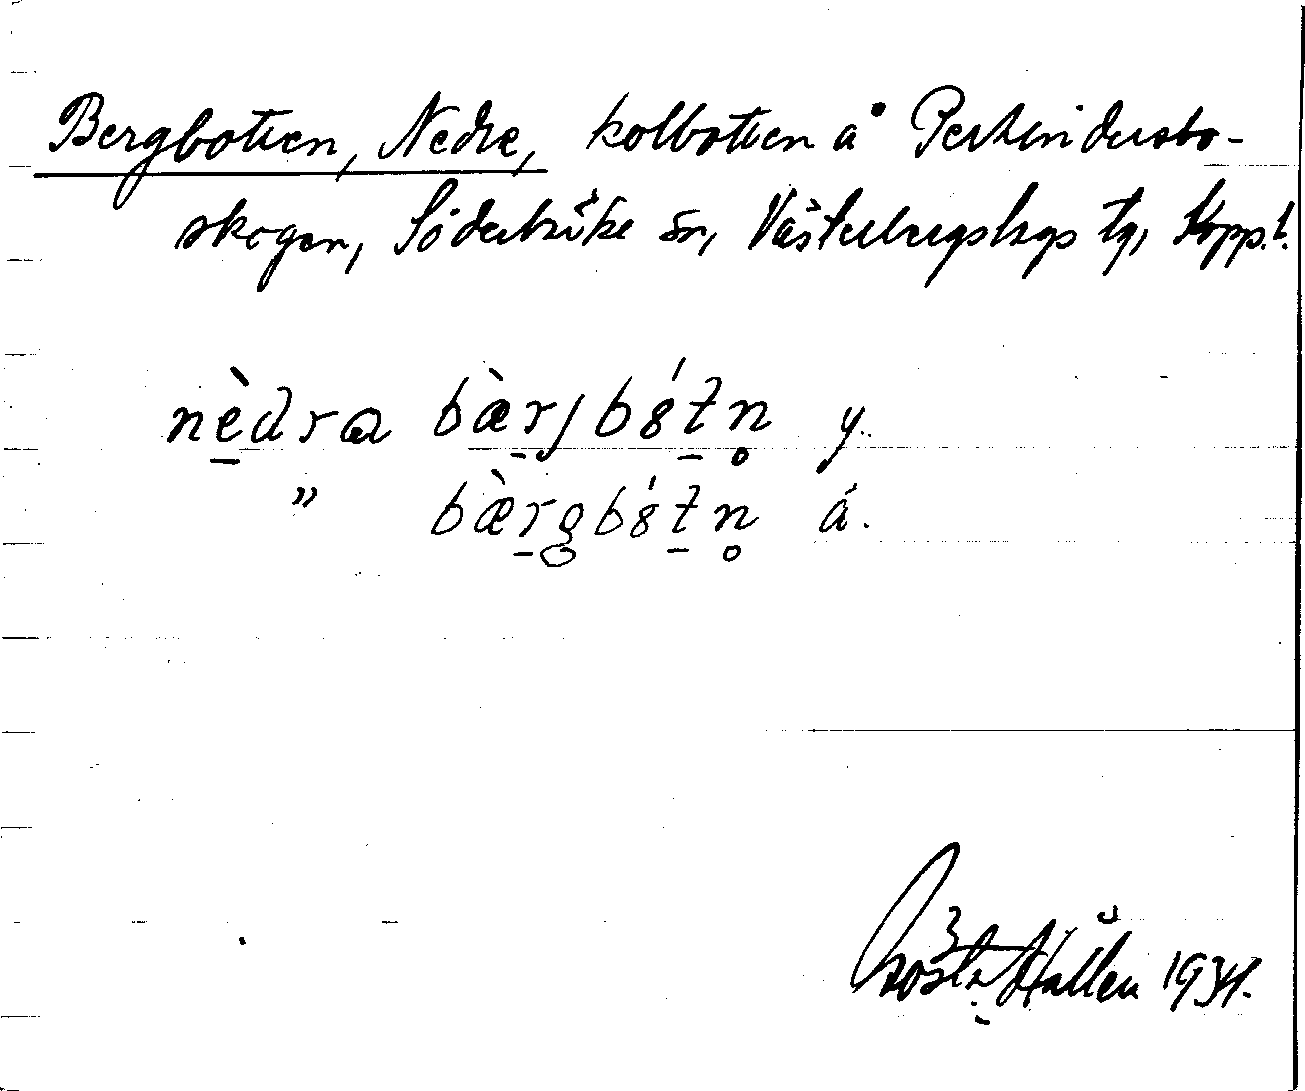 Bergbotten, Nedre, kolbotten å Perhindersbo-
skogen, Söderbärke sn, Västerbergslags tg, Kopp.l.
nèdra bærjbótn y.
" bærgbótn á.
Gösta Hallén 1934.